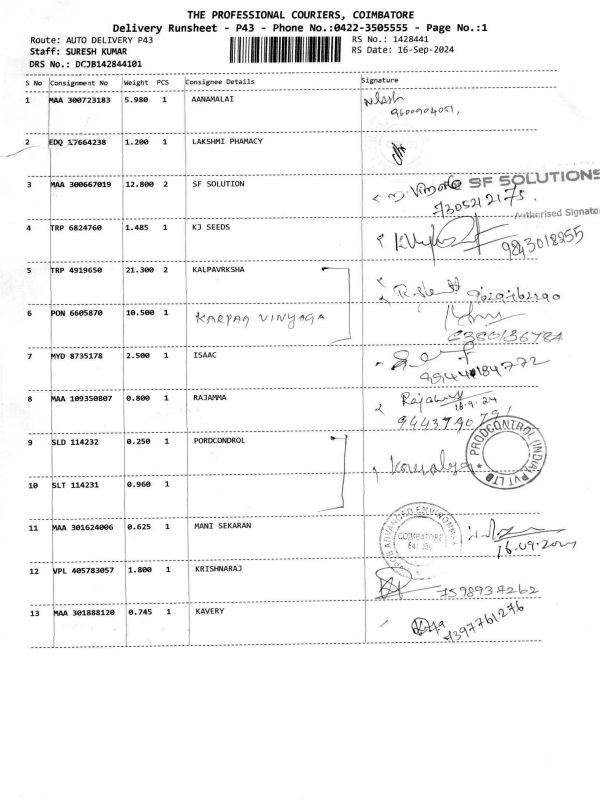 THE PROFESSIONAL COURIERS, COIMBATORE
Delivery Runsheet - P43 - Phone No.:0422-3505555 - Page No.:1
Route: AUTO DELIVERY P43 RS No.: 1428441
Staff: SURESH KUMAR RS Date: 16-Sep-2024
DRS No.: DCJB142844101
S No Consignment No Weight PCS Consignee Details Signature
1 MAA 300723183 5.980 1 AANAMALAI
9600904051,
2 EDQ 17664238 1.200 1 LAKSHMI PHAMACY
3 MAA 300667019 12.800 2 SF SOLUTION
SF SOLUTIONS
7305212175.
Authorised Signator
4 TRP 6824760 1.485 1 KJ SEEDS
9843018255
5 TRP 4919650 21.300 2 KALPAVRKSHA
9629762290
6 PON 6605870 10.500 1 KARPAG VINYAGA
7 MYD 8735178 2.500 1 ISAAC
8 MAA 109350807 0.800 1 RAJAMMA
16.9.24
9443790791
9 SLD 114232 0.250 1 PORDCONDROL
PRODCONTROL (INDIA) PVT LTD
10 SLT 114231 0.960 1
11 MAA 301624006 0.625 1 MANI SEKARAN
COIMBATORE
16.09.2024
12 VPL 405783057 1.800 1 KRISHNARAJ
7598937262
13 MAA 301888120 0.745 1 KAVERY
7397761276